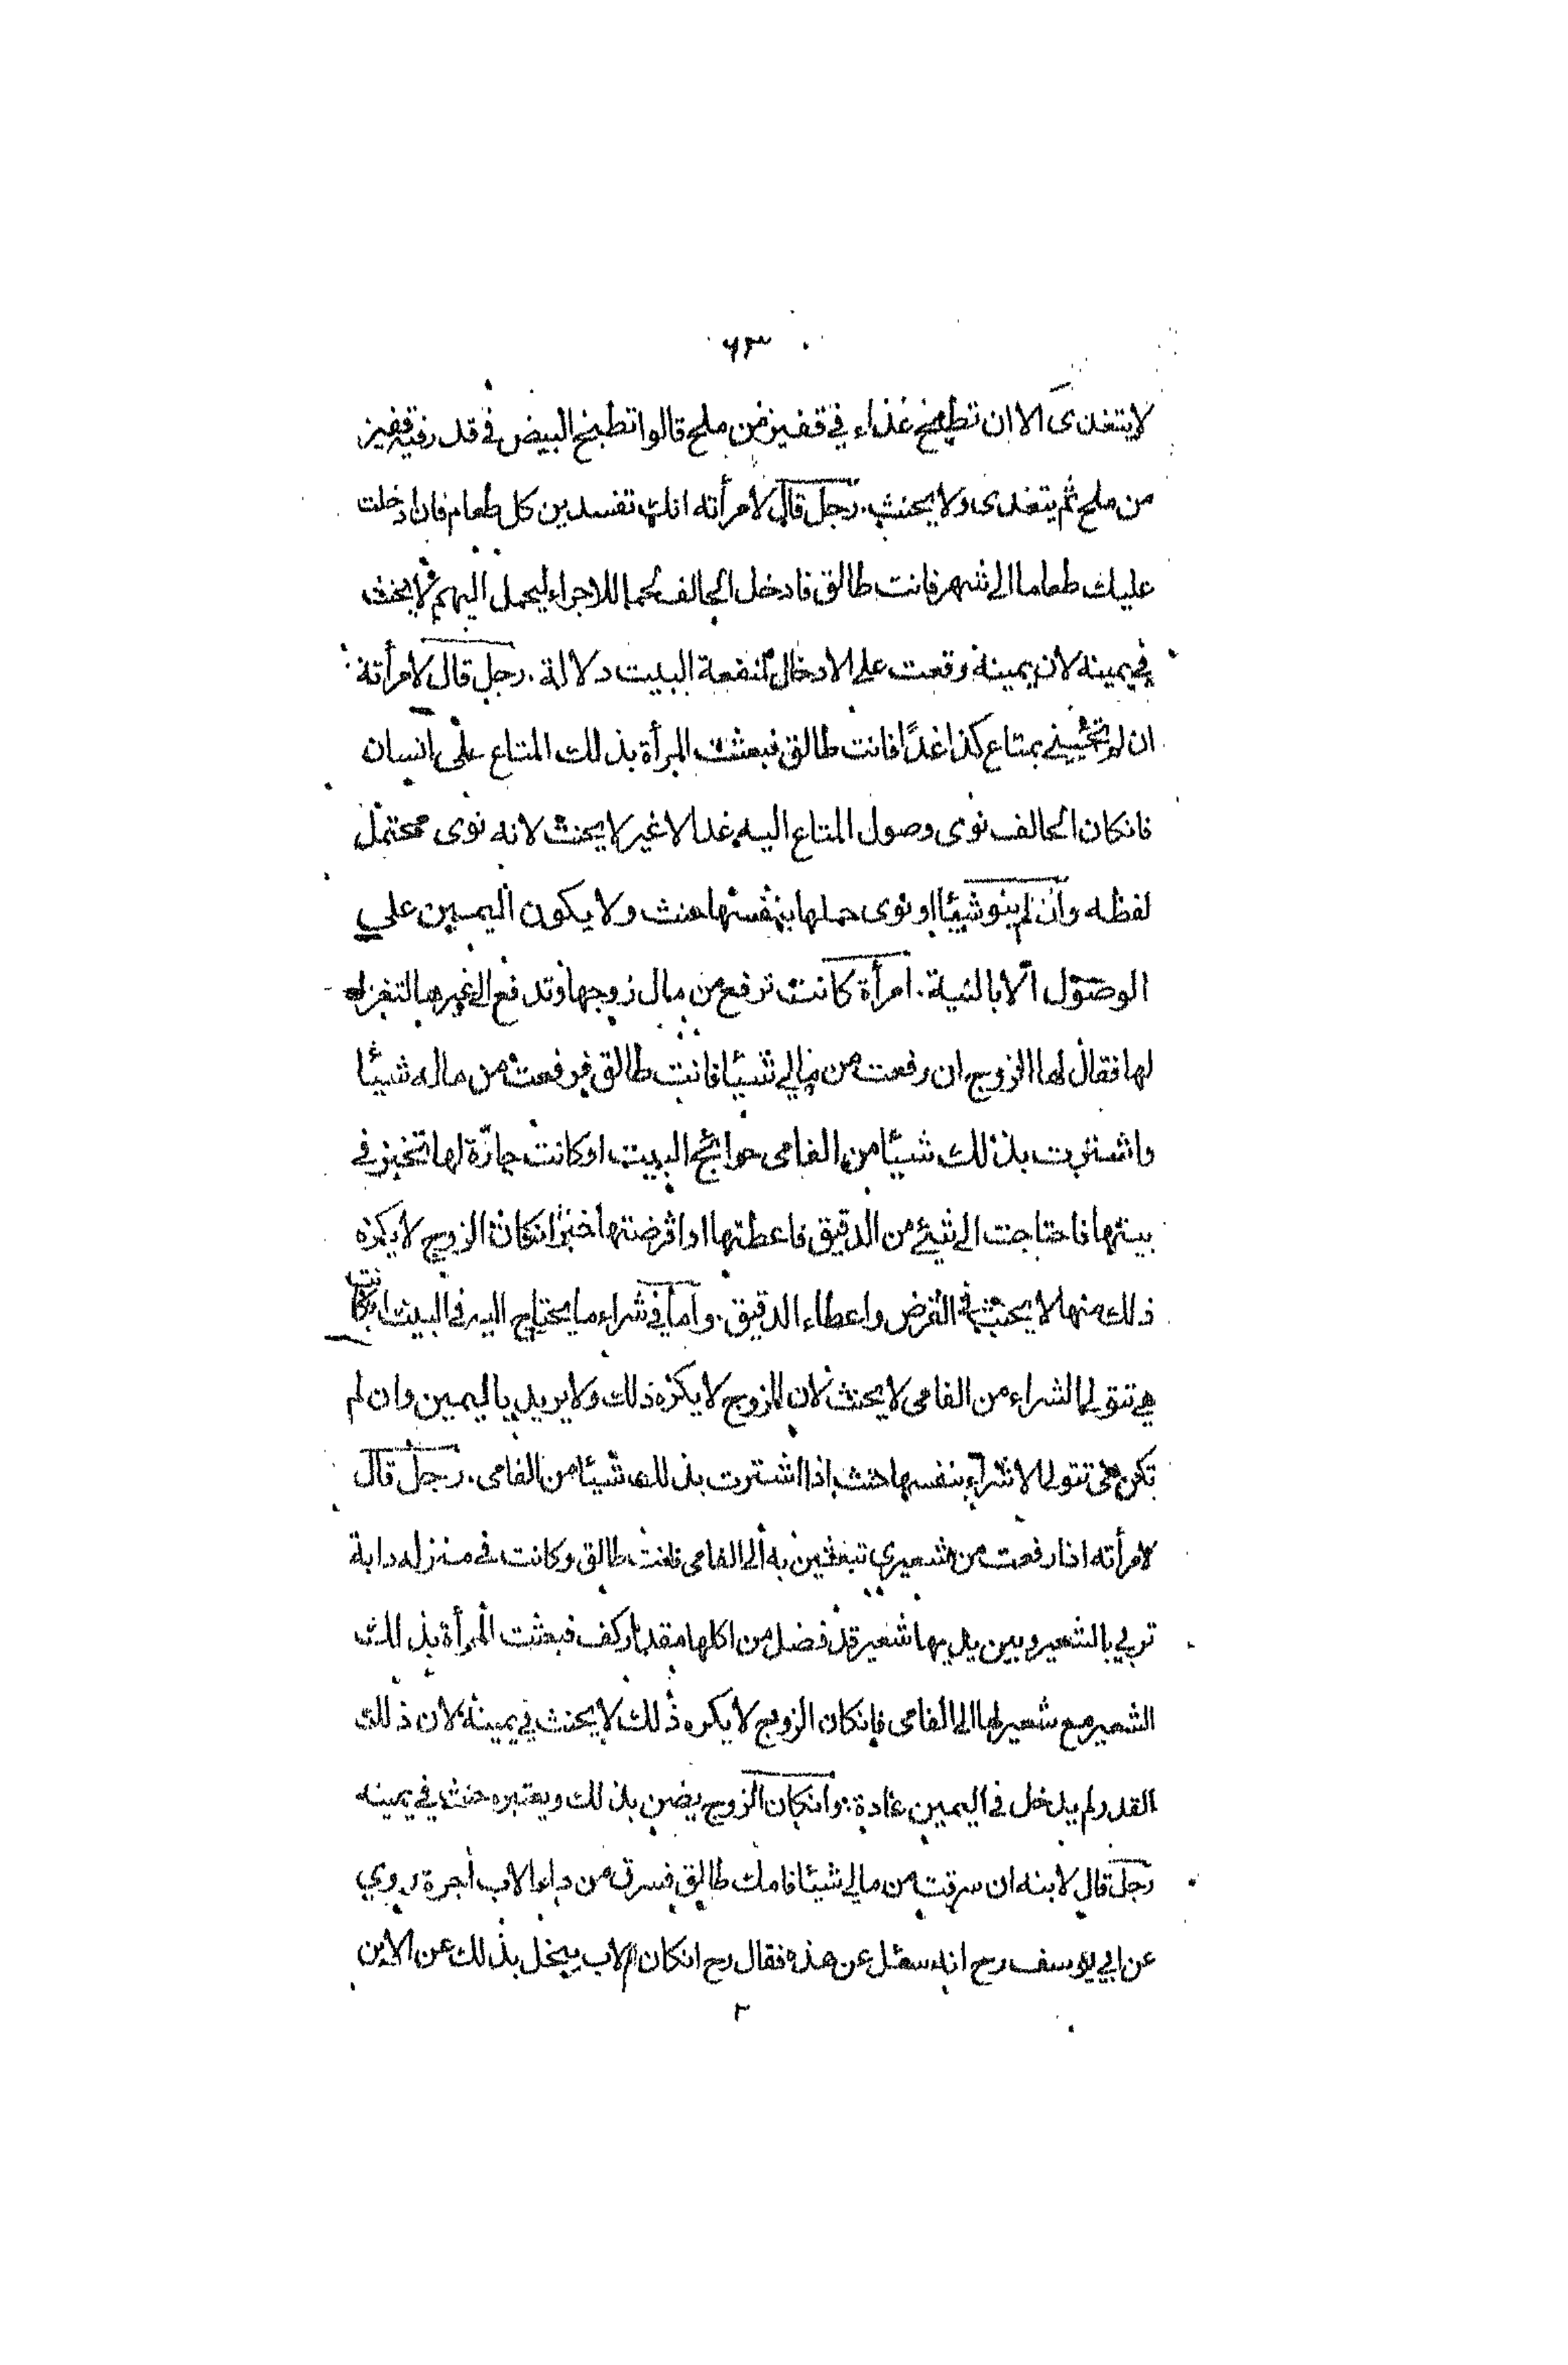 ٦٣
لا يتغدى الا ان تطبخ غذاء في قفيز من ملح قالوا تطبخ البيض في قدر فيه قفيز
من ملح ثم يتغدى ولا يحنث. رجل قال لامرأته انك تفسدين كل طعام فان ادخلت
عليك طعاما الى شهر فانت طالق فادخل الحالف لحما للاجراء ليحمل اليهم لا يحنث
في يمينه لان يمينه وقعت على الادخال لمنفعة البيت دلالة. رجل قال لامرأته
ان لم تجيئيني بمتاع كذا غدًا فانت طالق فبعثت المرأة بذلك المتاع على انسان
فانكان الحالف نوى وصول المتاع اليه غدا لا غير لا يحنث لانه نوى محتمل
لفظه وان لم ينو شيئا او نوى حملها بنفسها حنث ولا يكون اليمين على
الوصول الا بالنية. امرأة كانت ترفع من مال زوجها وتدفع الى غيرها لتغزل
لها فقال لها الزوج ان رفعت من مالي شيئا فانت طالق فرفعت من ماله شيئا
واشترت بذلك شيئا من الفامى حوائج البيت او كانت جارة لها تخبز في
بيتها فاحتاجت الى شيئ من الدقيق فاعطتها او اقرضتها خبزا انكان الزوج لا يكره
ذلك منها لا يحنث في القرض واعطاء الدقيق. واما في شراء ما يحتاج اليه في البيت ان كانت
هي تتولى الشراء من الفامى لا يحنث لان الزوج لا يكره ذلك ولا يريد باليمين وان لم
تكن هي تتولى الاشراء بنفسها حنث اذا اشترت بذلك شيئا من الفامى. رجل قال
لامرأته اذا رفعت من شعيري تبعثين به الى الفامى فانت طالق وكانت في منزله دابة
تربي بالشعير وبين يديها شعير قد فضل من اكلها مقدار كف فبعثت المرأة بذلك
الشعير مع شعير لها الى الفامى فانكان الزوج لا يكره ذلك لا يحنث في يمينه لان ذلك
القدر لم يدخل في اليمين عادة. وانكان الزوج يضن بذلك ويعتبره حنث في يمينه
رجل قال لابنه ان سرقت من مالي شيئا فامك طالق فسرق من دار الاب اجرة روي
عن ابي يوسف رح انه سئل عن هذه فقال رح انكان الاب يبخل بذلك عن الابن
٢